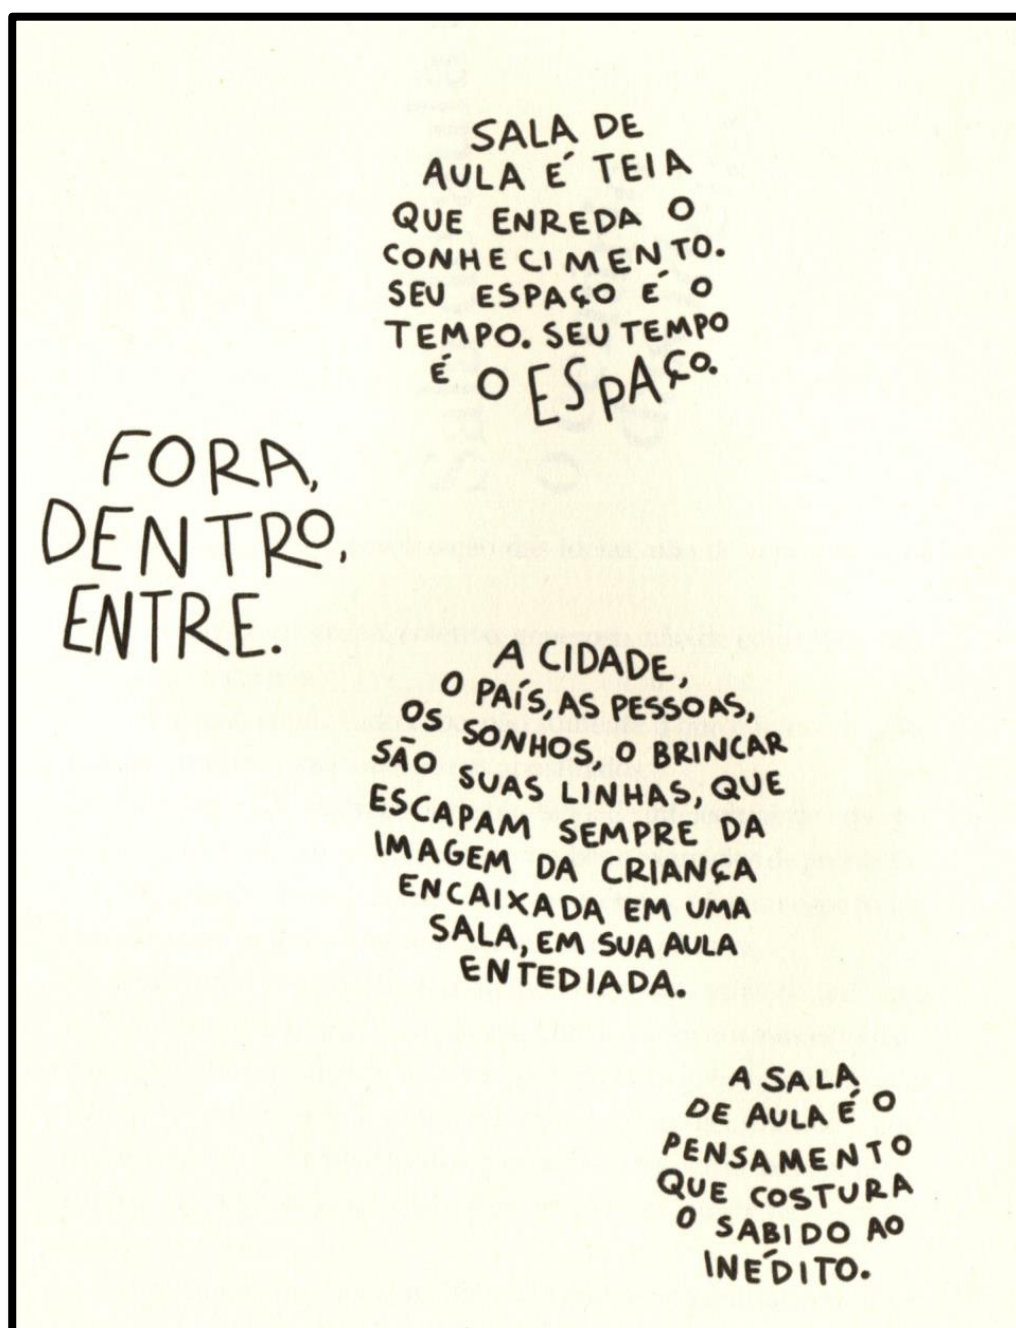 SALA DE
AULA É TEIA
QUE ENREDA O
CONHECIMENTO.
SEU ESPAÇO É O
TEMPO. SEU TEMPO
É O ESPAÇO.
FORA,
DENTRO,
ENTRE.
A CIDADE,
O PAÍS, AS PESSOAS,
OS SONHOS, O BRINCAR
SÃO SUAS LINHAS, QUE
ESCAPAM SEMPRE DA
IMAGEM DA CRIANÇA
ENCAIXADA EM UMA
SALA, EM SUA AULA
ENTEDIADA.
A SALA
DE AULA É O
PENSAMENTO
QUE COSTURA
O SABIDO AO
INÉDITO.